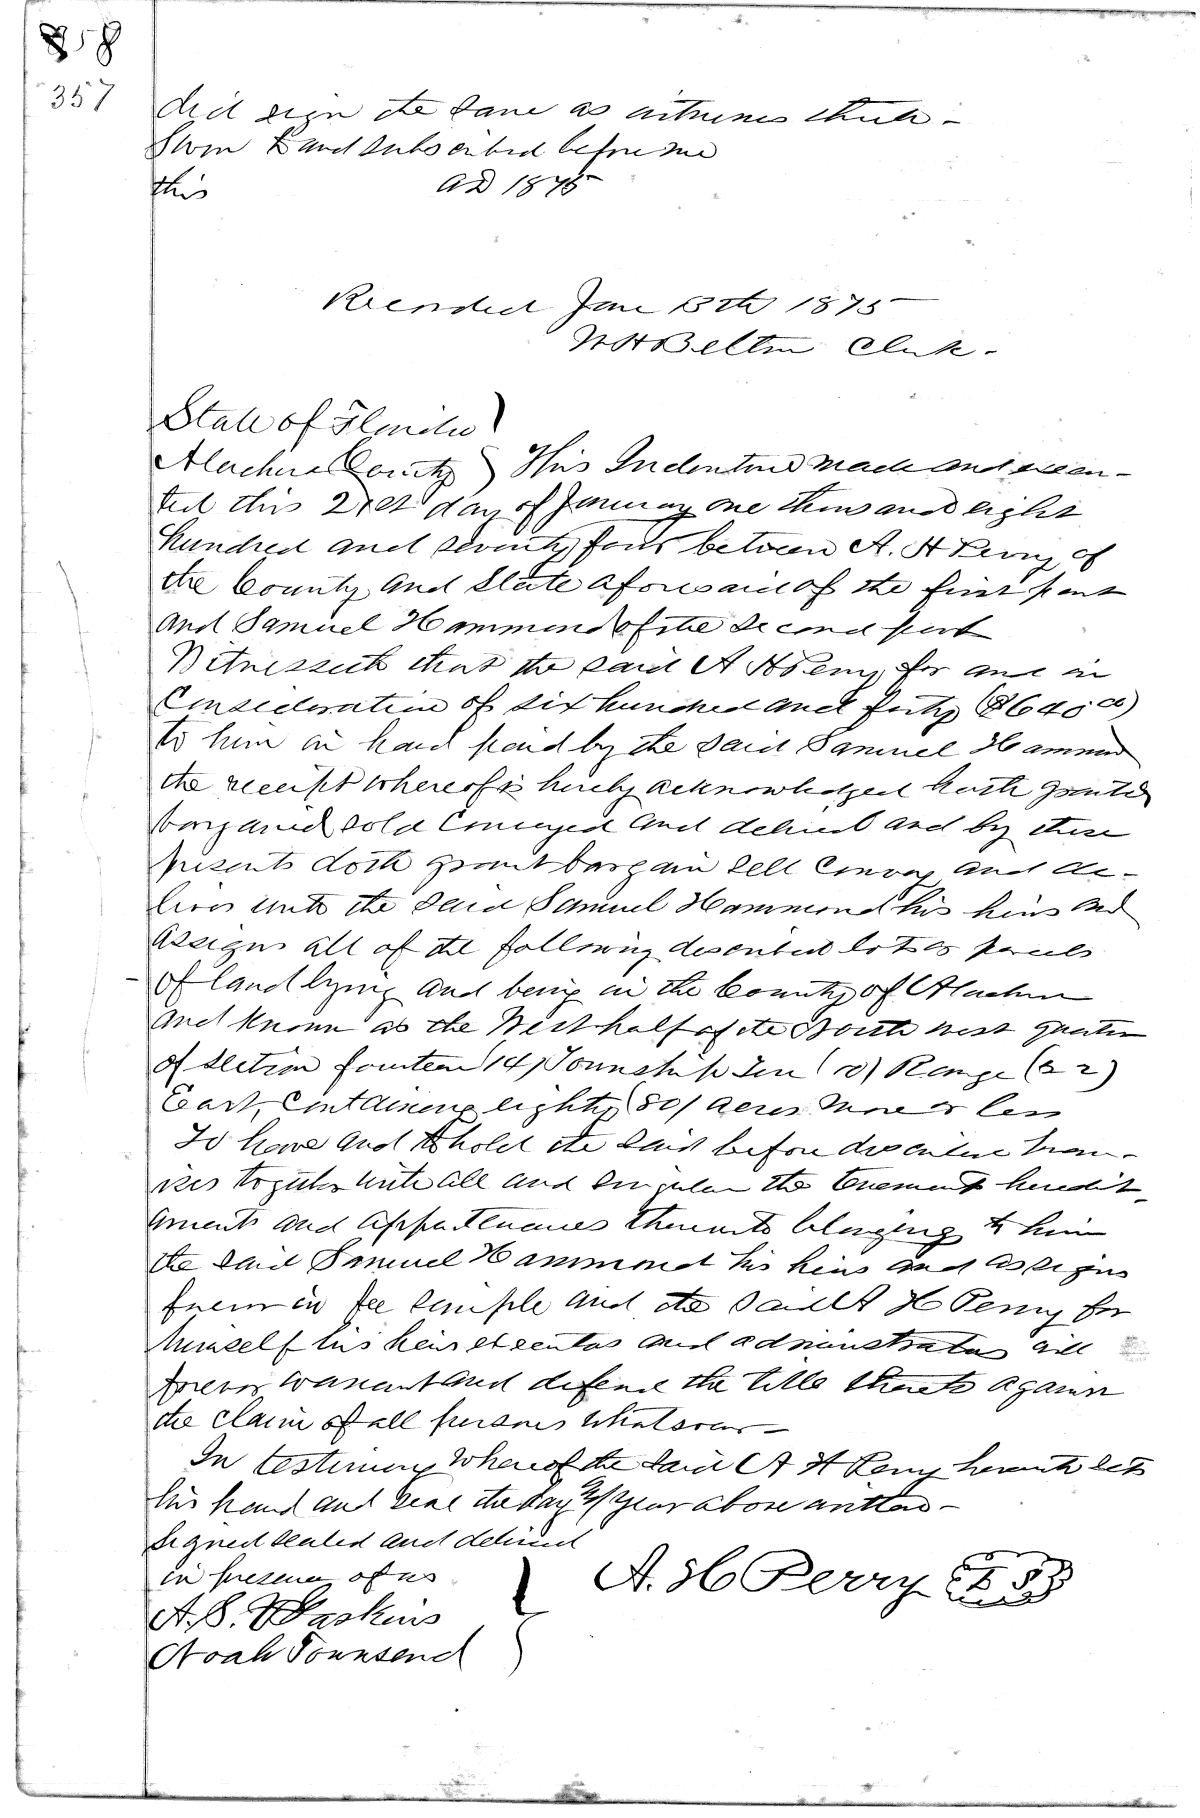 858
357
did sign the same as witnesses thereto -
Sworn to and subscribed before me
this AD 1875
Recorded Jany 13th 1875
Belton Clerk -
State of Florida
Alachua County } This Indenture made and execu-
ted this 21st day of January one thousand eight
hundred and seventy four between A. H Perry of
the County and State aforesaid of the first part
and Samuel Hammond of the second part
Witnesseth that the said A H Perry for and in
Consideration of six hundred and forty ($640 00)
to him in hand paid by the said Samuel Hammond
the receipt whereof is hereby acknowledged hath granted
bargained sold Conveyed and delivered and by these
presents doth grant bargain sell Convey and de-
liver unto the said Samuel Hammond his heirs and
assigns all of the following described lots or parcels
of land lying and being in the County of Alachua
and known as the West half of the South west quarter
of section fourteen (14) Township Ten (10) Range (22)
East, Containing eighty (80) acres more or less
To have and to hold the said before described prem-
ises together with all and singular the tenements heredit-
aments and appurtenances thereunto belonging to him
the said Samuel Hammond his heirs and assigns
forever in fee simple and the said A H Perry for
himself his heirs executors and administrators will
forever warrant and defend the title thereto against
the claim of all persons whatsoever -
In testimony whereof the said A H Perry hereunto sets
his hand and seal the day & year above written -
Signed sealed and delivered
in presence of us
A. H Perry L S
A. S. Gaskins
Noah Townsend